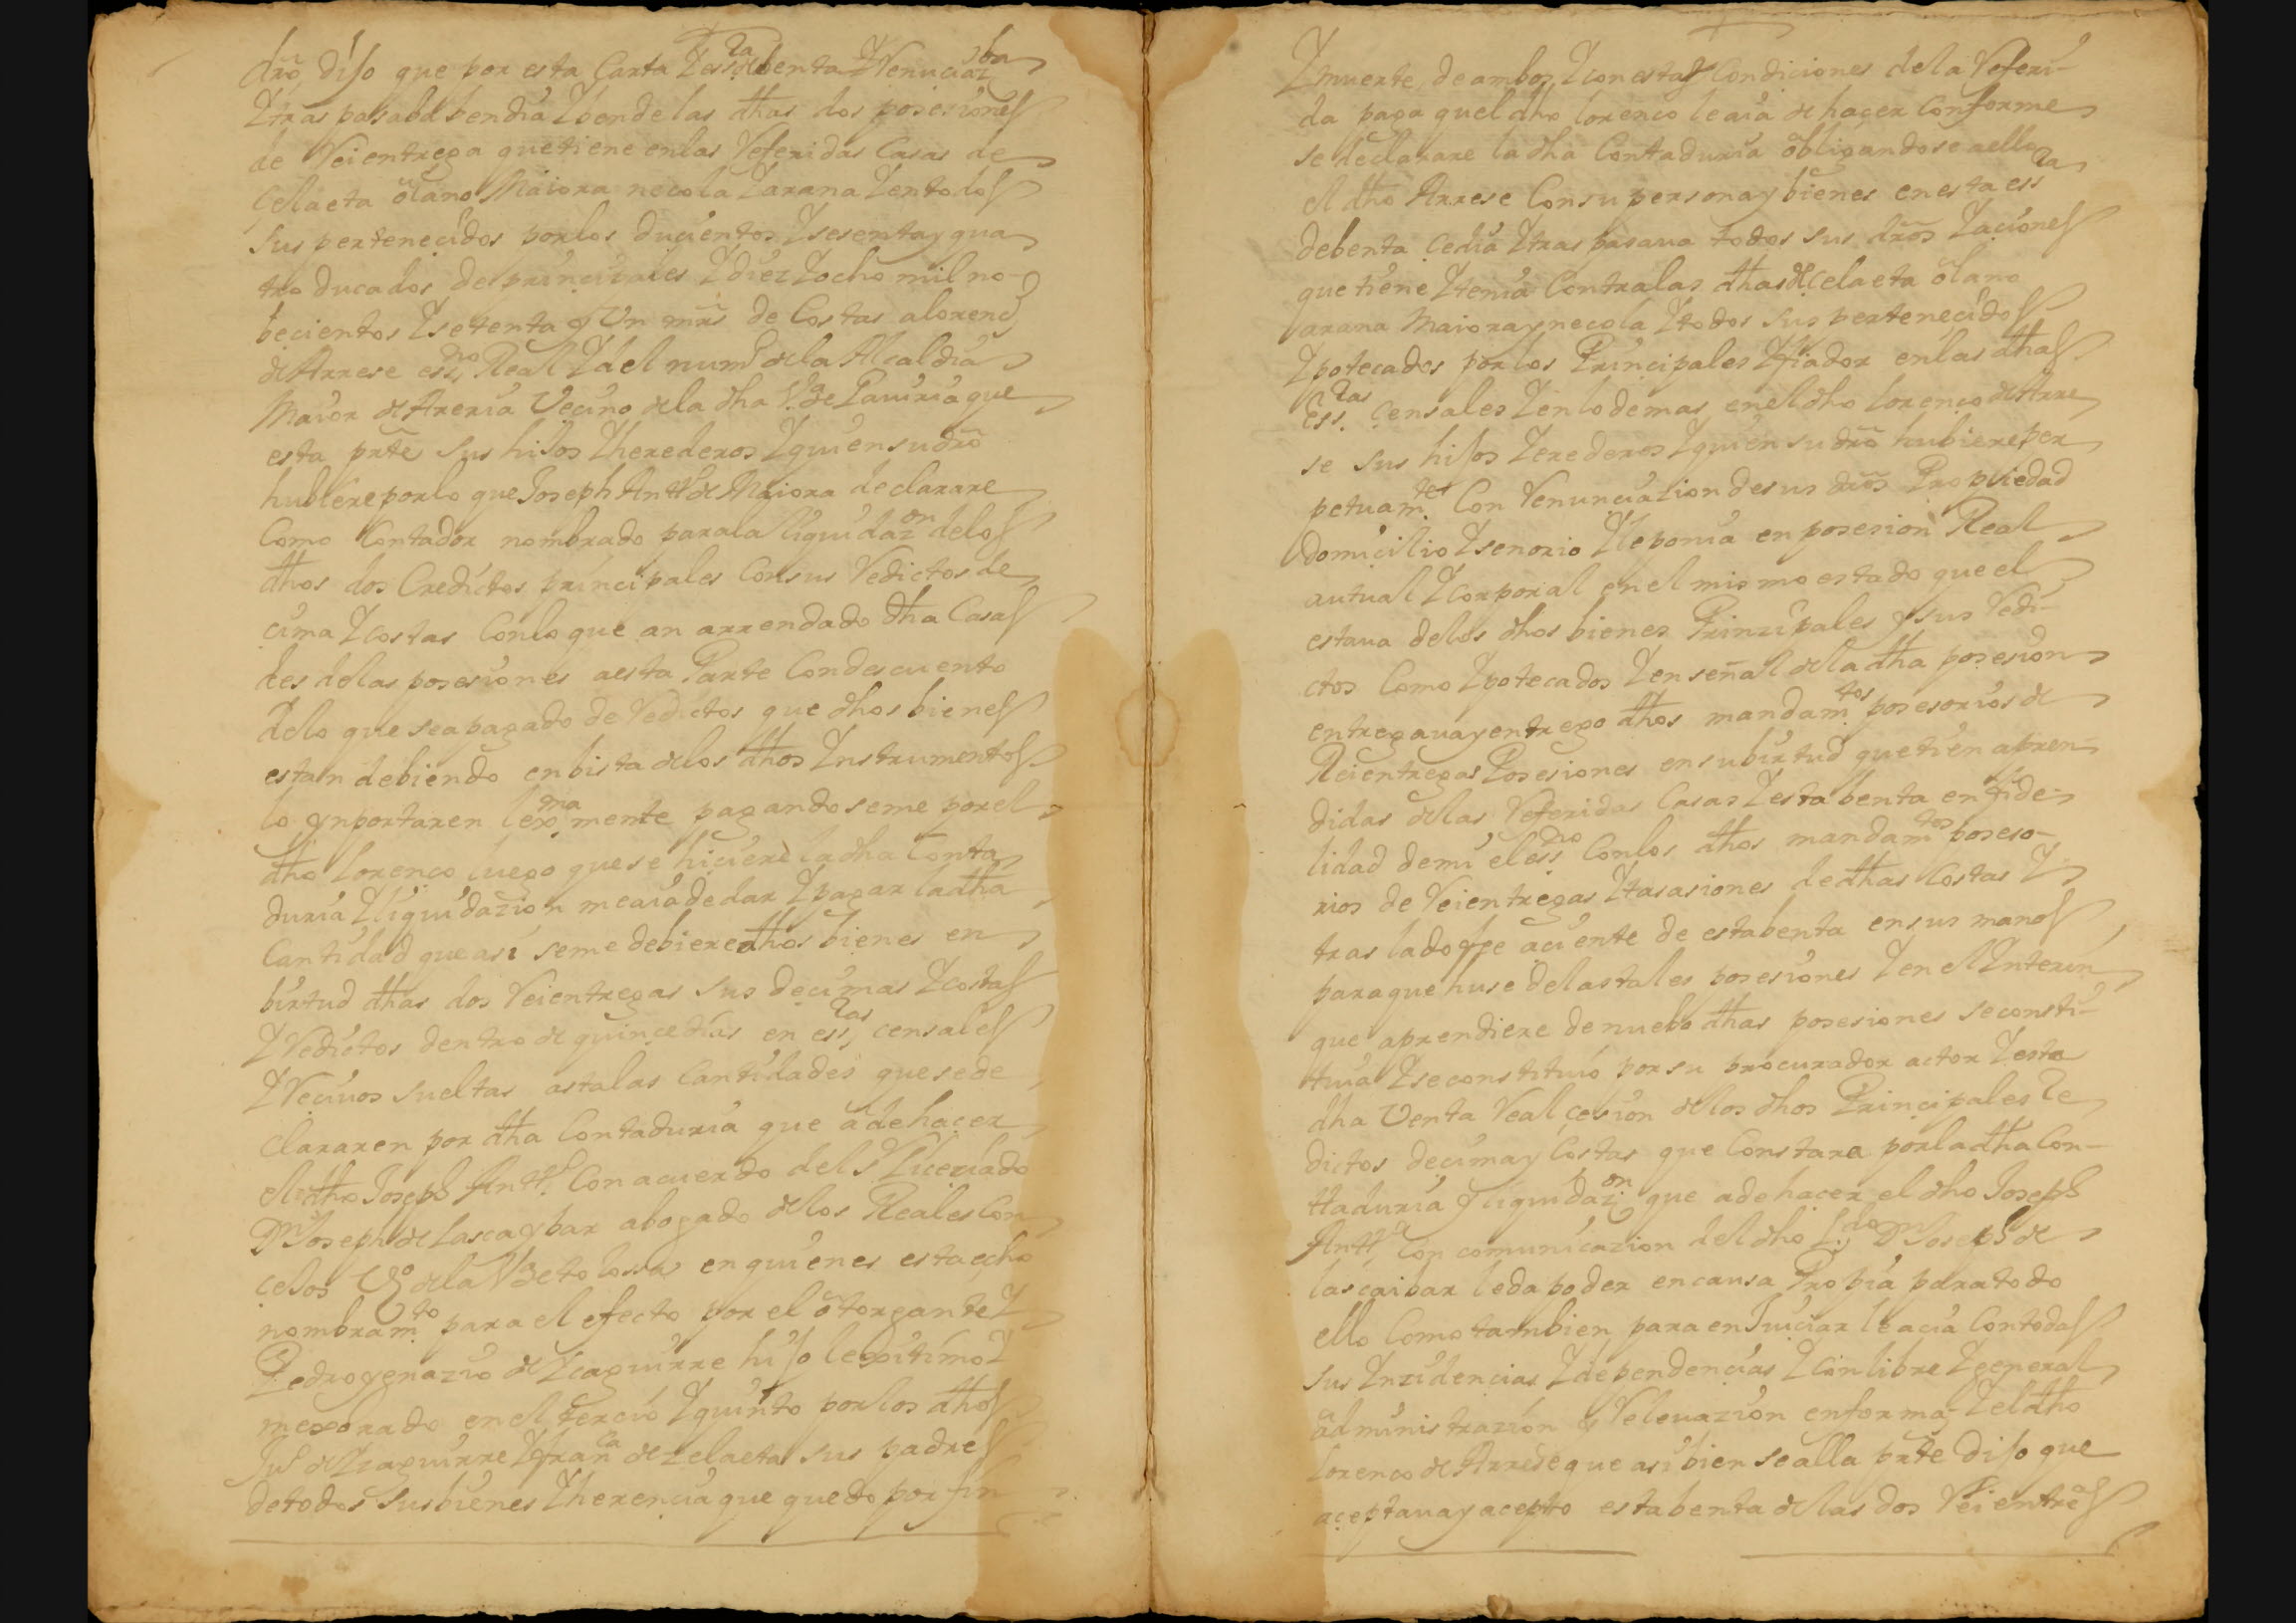 dro, dijo que por esta Carta Y ess.ra de benta Y Renuciaz.ba
Ytraspasaba bendia Y bende las dhas dos posesiones
de Reientrega que tiene en las Referidas Casas de
Celaeta olano Maiora necola Y arana Y en todos
sus pertenecidos por los ducientos Y sesenta y qua
tro ducados de principales Y diez Y ocho mil no-
becientos Y setenta y Un mrs de Costas a lorenco
de Arrese ess.no Real Y del num.o de la Alcaldia
Maior de Areria Vecino de la dha V.a de Lauiria que
esta prte sus hijos Y herederos Y quien su dro
hubiere por lo que Joseph Antt.o de Maiora declarare
Como Contador nombrado para la liquidaz.on de los
dhos dos Credictos principales Con sus Redictos de
cima Y costas Con lo que an arrendado dha Casas
desde las posesiones a esta Parte Con descuento
de lo que sea pagado de Redictos que dhos bienes
estan debiendo en bista de los dhos Ynstrumentos
lo ynportaren lexma mente pagandoseme por el
dho lorenco luego que se hiciere la dha Conta
duria Y liquidazion me aia de dar Y pagar la dha
Cantidad que asi se me debiere dhos bienes en
birtud dhas dos Reientregas sus decimas Y costas
Y Redictos dentro de quince dias en ess.ras censales
Y Recivos sueltas asta las Cantidades que se de
clararen por dha Contaduria que a de hacer
el dho Joseph Antt.o Con acuerdo del S.r Licenciado
D.n Joseph de Lascaybar abogado de los Reales Con
cejos V.o de la V.a de tolossa en quienes esta echo
nombram.to para el efecto por el otorgante Y
Pedro ygnazio de Yzaguirre hijo lexitimo Y
mexorado en el tercio Y quinto por los dhos
Ju.o de Yzaguirre Y fran.ca de zelaeta sus padres
de todos sus bienes Y herencia que quedo por fin
Y muerte, de ambos, Y con estas Condiciones de la Referi-
da paga quel dho lorenco le aia de hacer Conforme
se declarare la dha Contaduria obligandose a ella
el dho Arrese Con su persona y bienes en esta ess.ra
de benta cedia Y traspasaua todos sus dros Y aciones
que tiene Y tenia Contra las dhas de Celaeta olano
arana Maiora y necola Y todos sus pertenecidos
Ypotecados por los Principales Y fiador en las dhas
Ess.ras Censales Y en lo demas en el dho lorenco de Arre
se sus hijos Y erederos Y quien su dro hubiere per
petuam.te Con Renunciazion de sus dros Propriedad
domicilio Y senorio Y le ponia en posesion Real
autual Y corporal en el mismo estado que el
estaua de los dhos bienes Prinzipales y sus Redi-
ctos Como Ypotecados Y en señal de la dha posesion
entregaua y entrego dhos mandam.tos posesorios de
Reientregas Posesiones en su birtud que tien apren-
didas de las Referidas Casas Y esta benta en fide-
lidad de mi el ess.no Con los dhos mandam.tos poseso-
rios de Reientregas Y tasasiones de dhas Costas Y
traslado fe aciente de esta benta en sus manos
para que huse de las tales posesiones Y en el Ynterin
que aprendiere de nuebo dhas posesiones se consti-
tuia Y se constituio por su procurador actor Y esta
dha Venta Real cesion de los dhos Principales Re
dictos decima y Costas que Constara por la dha Con-
ttaduria y liquidaz.on que a de hacer el dho Joseph
Antt.o Con comunicazion del dho L.do D.n Joseph de
lascaibar le da poder en causa Propia para todo
ello Como tambien para en Juiciar le acia Con todas
sus Ynzidencias Y dependencias Y Con libre Y general
administrazion y Releuazion en forma, Y el dho
lorenco de Arrese que asi bien se alla prte Dijo que
aceptaua y acepto esta benta de las dos Reientre